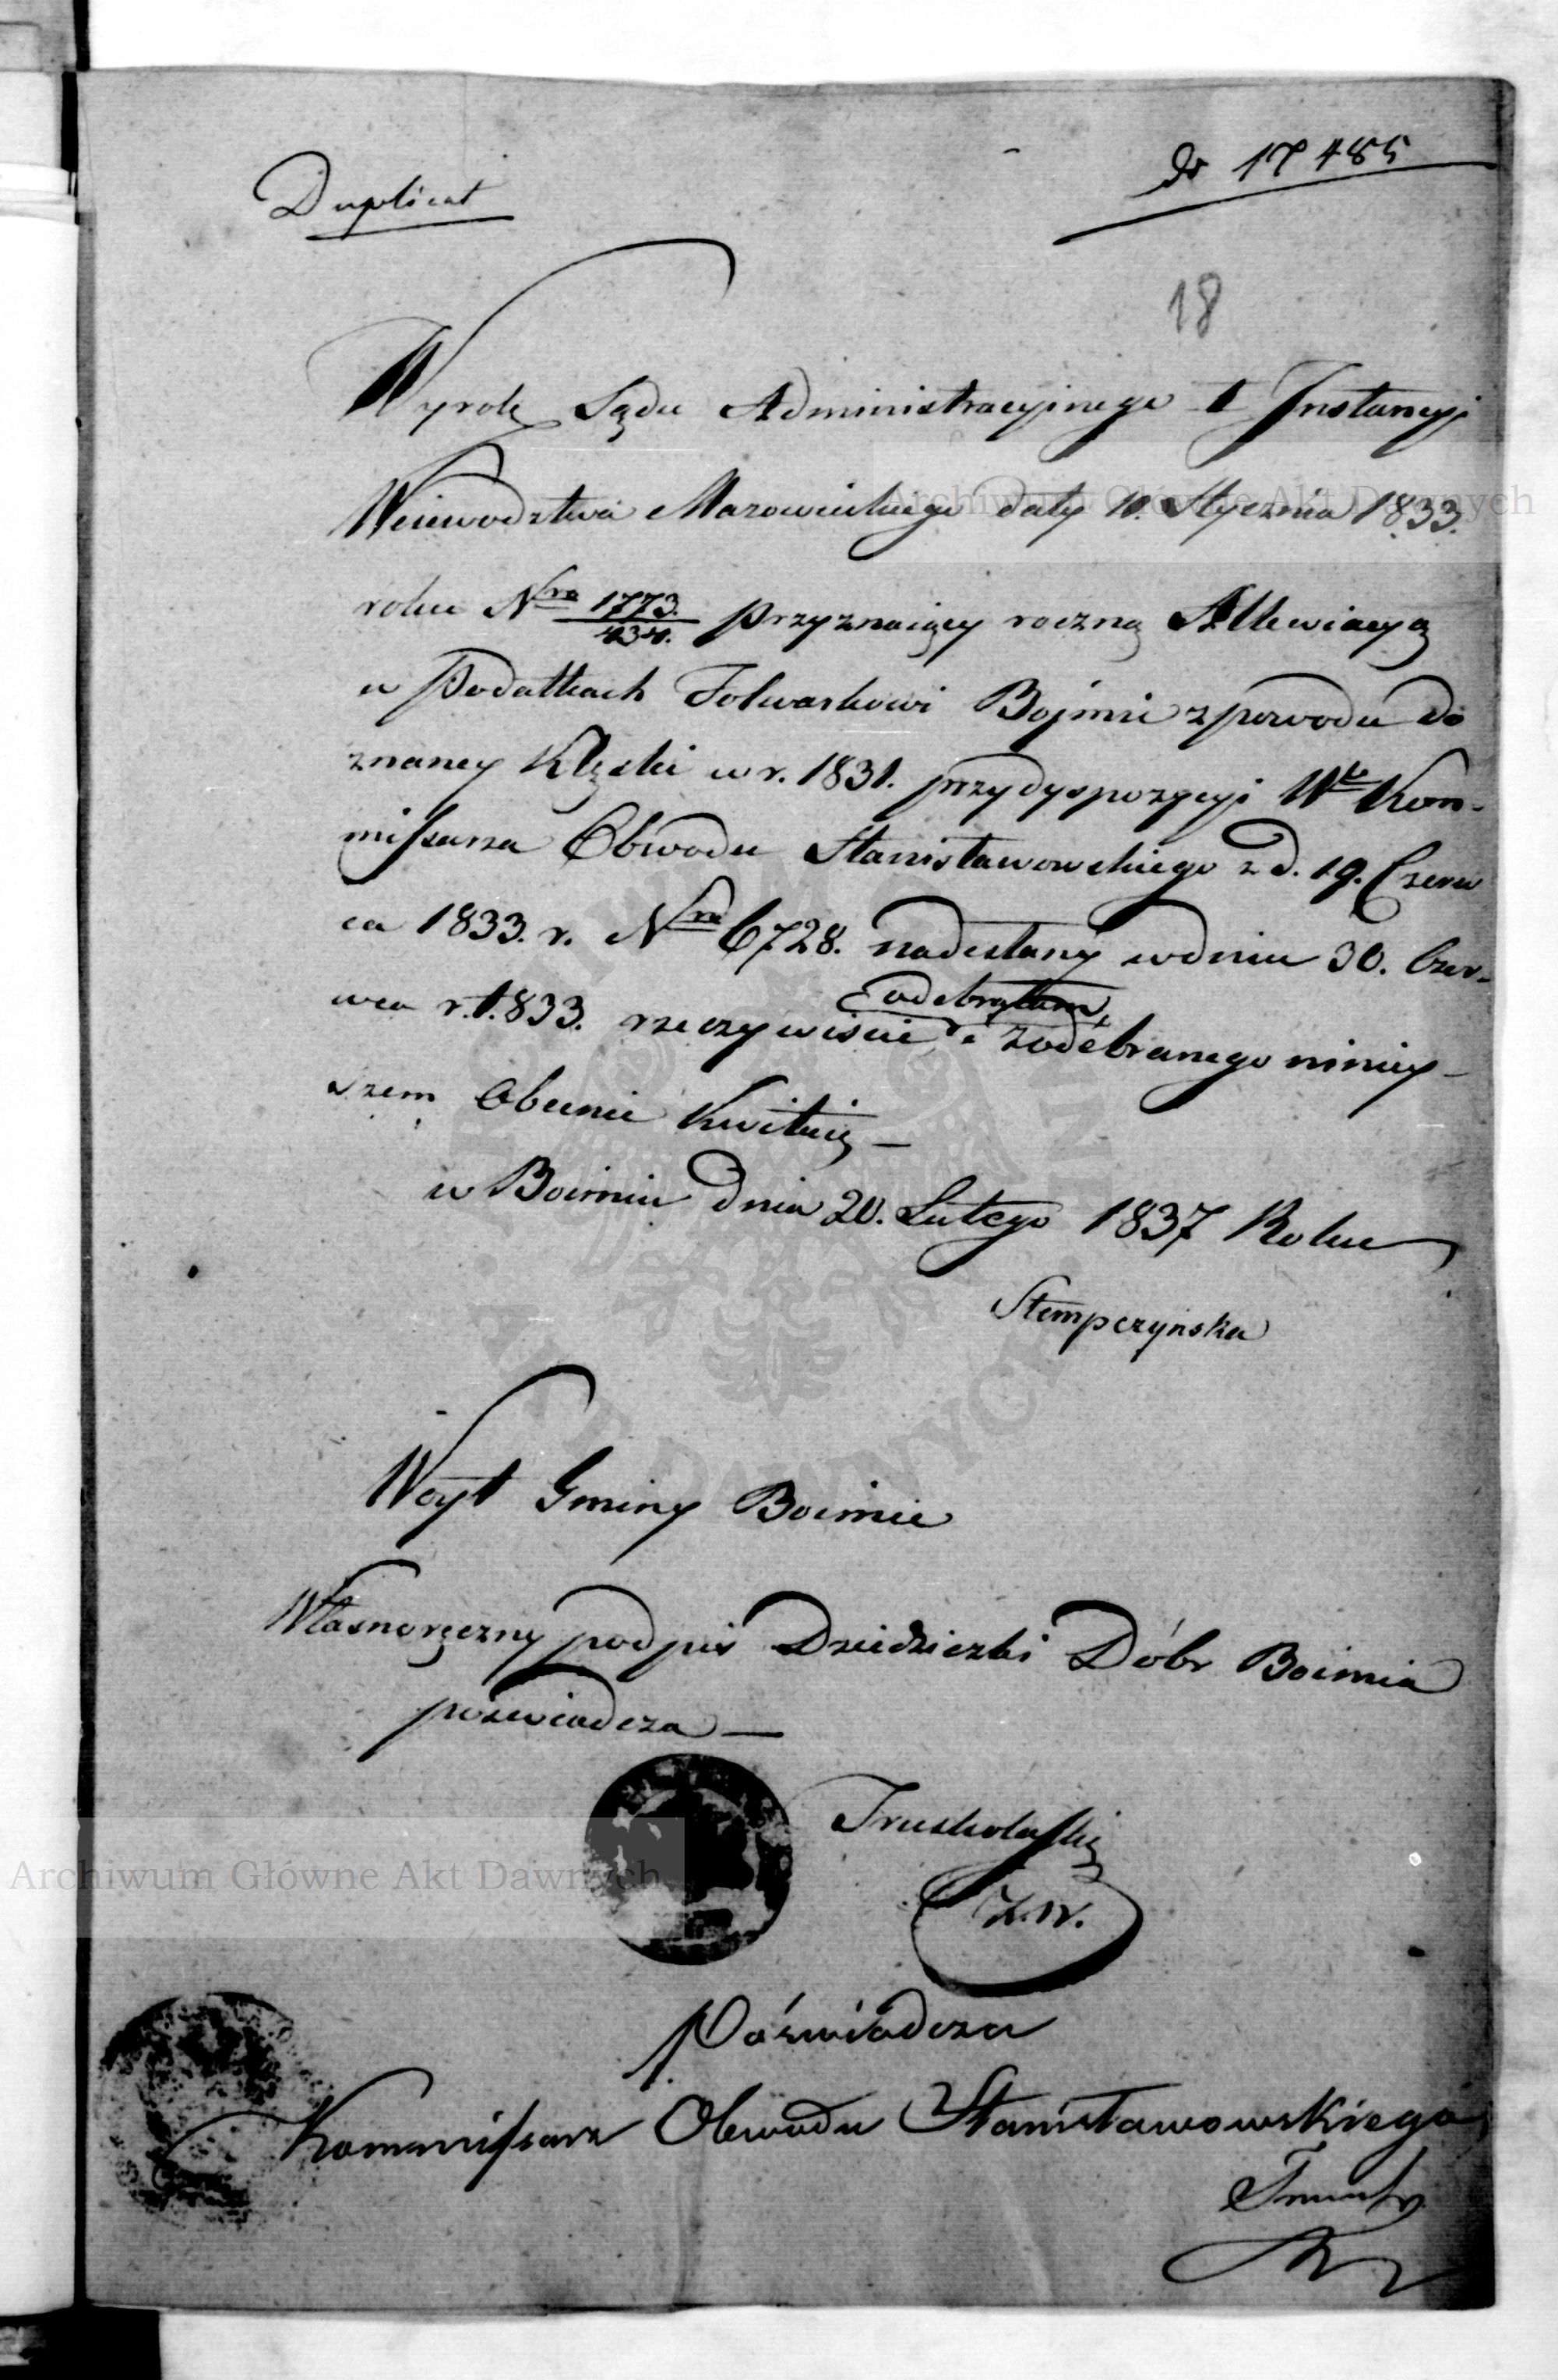 Duplicat
do 17485
18
Wyrok Sądu Administracyjnego I Instancyi
Woiewodztwa Mazowieckiego daty 10. Stycznia 1833.
roku Nro 1773./434. przyznaiący roczną Allewiacyą
w Podatkach Folwarkowi Bojmie z powodu do
znaney Klęski w r. 1831. przy dyspozycyi Wo Kom-
missarza Obwodu Stanisławowskiego z d. 19. Czerw
ca 1833. r. Nro 6728. nadesłany w dniu 30. Czer-
wca r. 1833. rzeczywiście odebrałam, i z odebranego niniey-
szem Obecnie kwituię —
w Boimiu dnia 20. Lutego 1837 Roku
Stempczyńska
Woyt Gminy Boimie
Własnoręczny podpis Dziedziczki Dóbr Boimia
poswiadcza —
Truskolaski
Z. W.
Poświadcza
Kommissarz Obwodu Stanisławowskiego
Archiwum Główne Akt Dawnych
Archiwum Główne Akt Dawnych